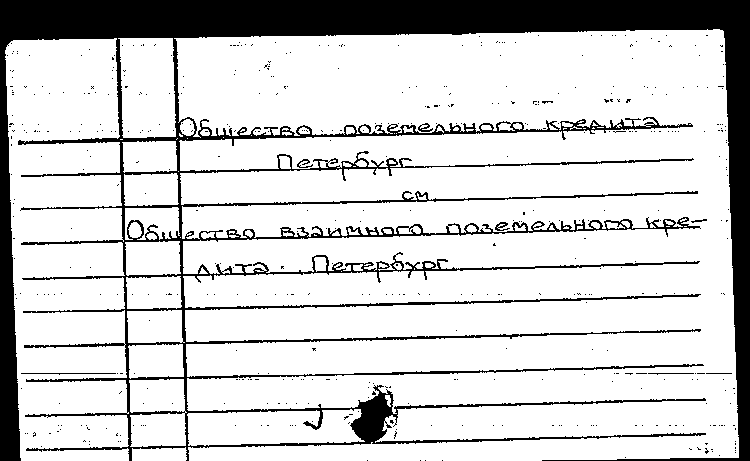 Общество поземельного кредита
Петербург
см.
Общество взаимного поземельного кре-
дита. Петербург.